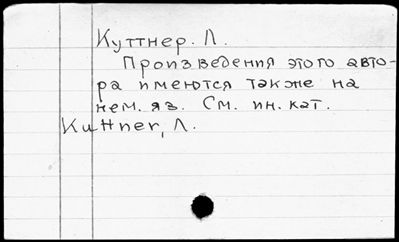 Куттнер. Л.
Произведения этого авто-
ра имеются также на
нем. яз. См. ин. кат.
Kuttner, Л.